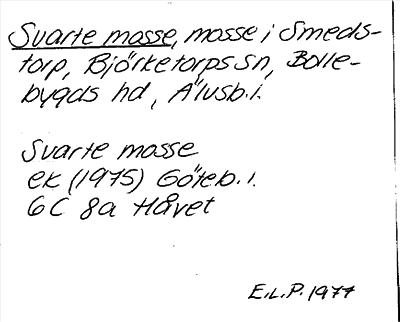 Svarte mosse, mosse i Smeds-
torp, Björketorps sn, Bolle-
bygds hd, Älvsb.l.
Svarte mosse
ek (1975) Göteb. l.
6C 8a Håvet
E.L.P. 1977